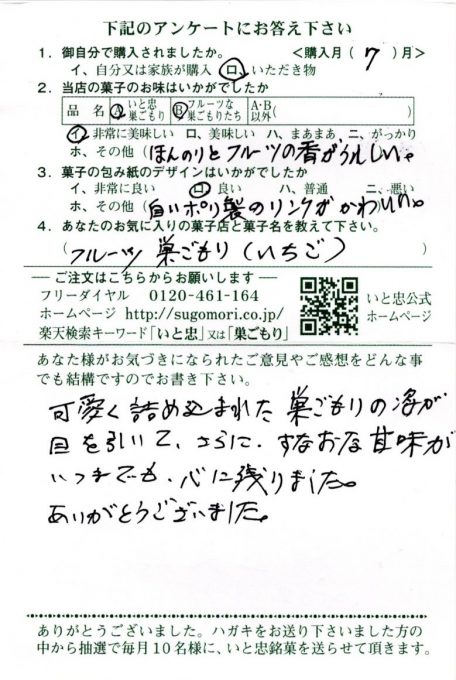 下記のアンケートにお答え下さい
1. 御自分で購入されましたか。 <購入月( 7 )月>
イ、自分又は家族が購入 ロ、いただき物
2. 当店の菓子のお味はいかがでしたか
品 名 A いと忠巣ごもり B フルーツな巣ごもりたち A・B以外( )
イ、非常に美味しい ロ、美味しい ハ、まあまあ ニ、がっかり
ホ、その他(ほんのりとフルーツの香がうれしい。
3. 菓子の包み紙のデザインはいかがでしたか
イ、非常に良い ロ、良い ハ、普通 ニ、悪い
ホ、その他(白いポリ製のリングが かわいい。
4. あなたのお気に入りの菓子店と菓子名を教えて下さい。
(フルーツ 巣ごもり(いちご) )
ご注文はこちらからお願いします
フリーダイヤル 0120-461-164
ホームページ http://sugomori.co.jp/
楽天検索キーワード「いと忠」又は「巣ごもり」
いと忠公式
ホームページ
あなた様がお気づきになられたご意見やご感想をどんな事
でも結構ですのでお書き下さい。
可愛く詰め込まれた巣ごもりの姿が
目を引いて、さらに、すなおな甘味が
いつまでも、心に残りました。
ありがとうございました。
ありがとうございました。ハガキをお送り下さいました方の
中から抽選で毎月10名様に、いと忠銘菓を送らせて頂きます。